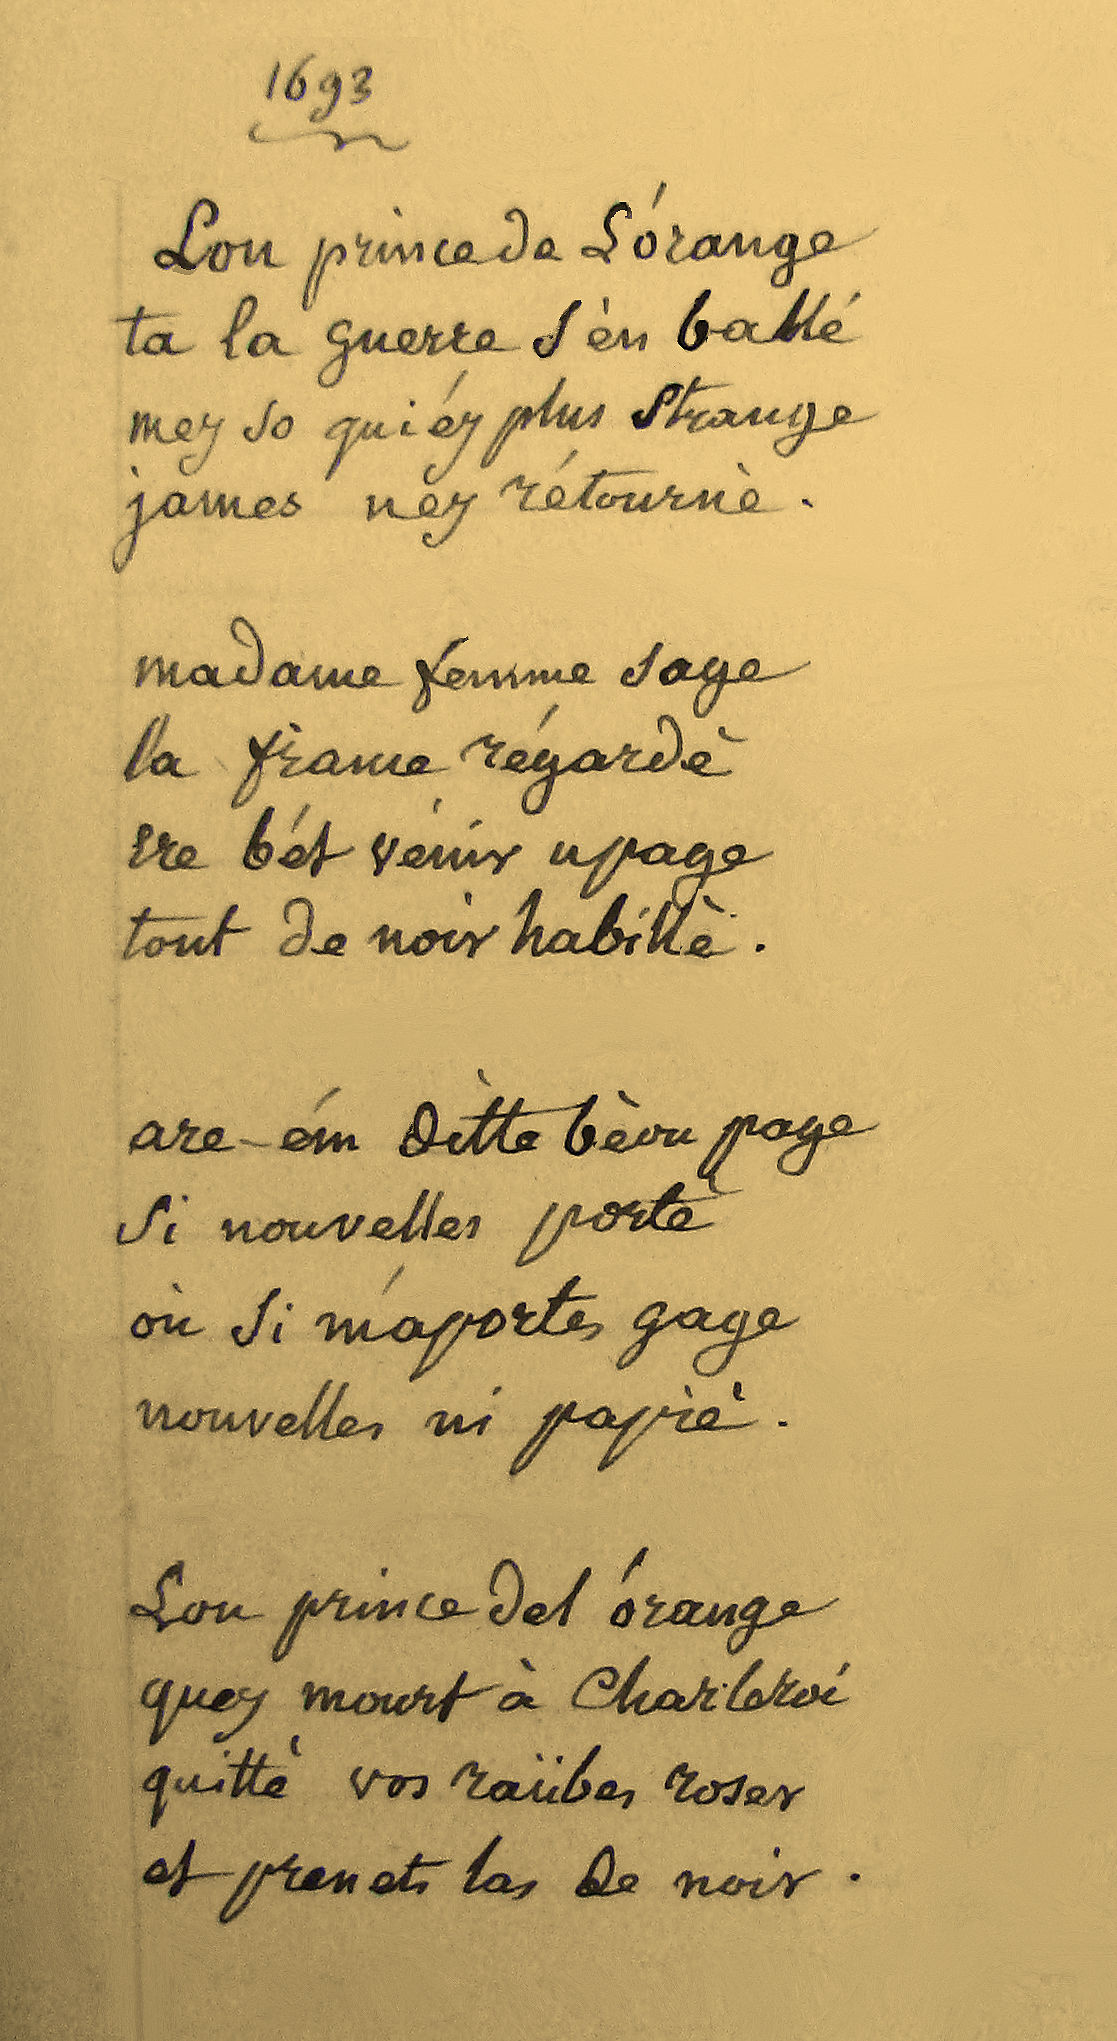 1693
Lou prince de L'órange
ta la guerre s'èn ballé
mey so qui éy plus strange
james ney rétournè.
madame femme sage
la frame régardè
ere bét vénir u page
tout de noir habillè.
are-ém ditte bèou page
si nouvelles portè
ou si m'aportes gage
nouvelles ni papiè.
Lou prince del órange
quey mourt à Charleroi
quittè vos raübes roses
et prenets las de noir.